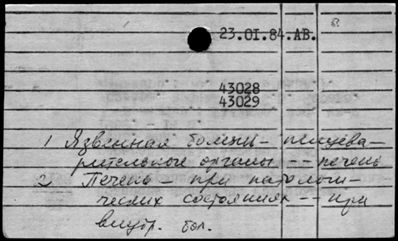 23.01.84.АВ.
43028
43029
1 Язвенная болезнь - пищева-
рительные органы -- печень
2 Печень - при патологи-
ческих состояниях -- при
внутр. бол.